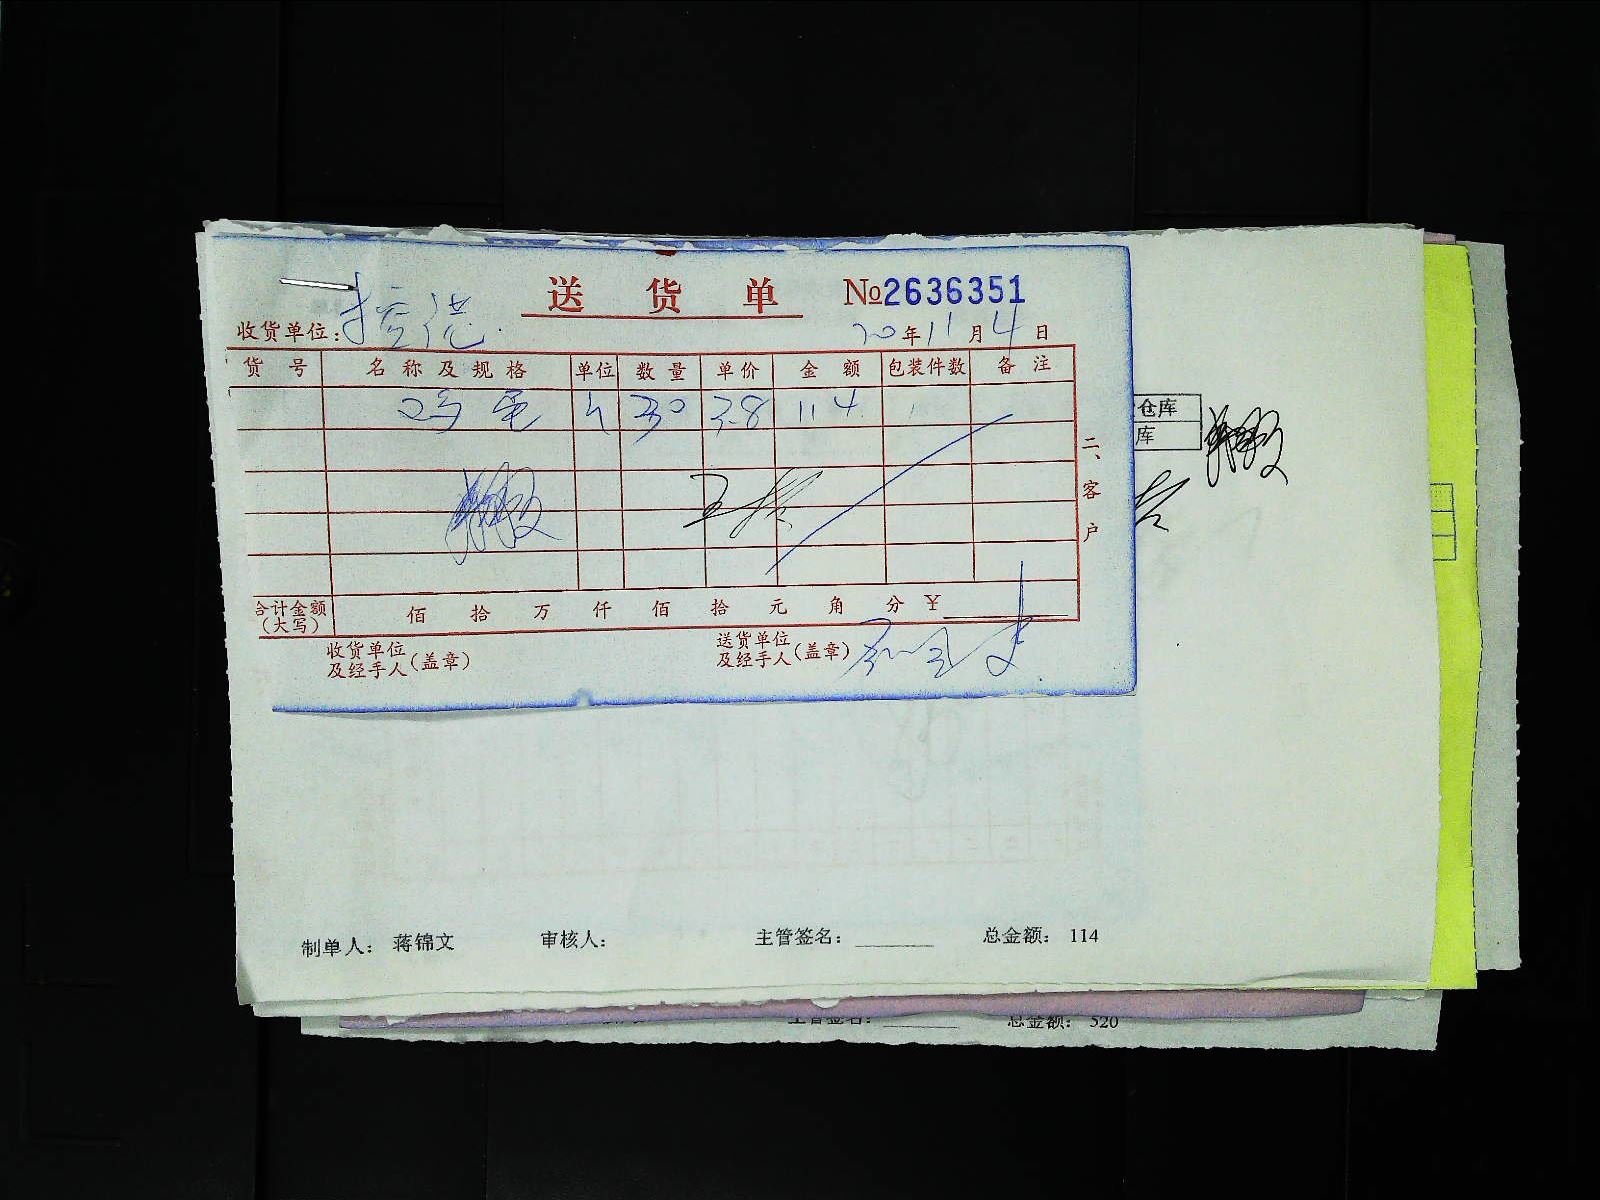 送货单 №2636351
收货单位: 20年11月4日
货号 名称及规格 单位 数量 单价 金额 包装件数 备注
30 3.8 114
二、客户
合计金额(大写) 佰 拾 万 仟 佰 拾 元 角 分 ¥
收货单位及经手人(盖章) 送货单位及经手人(盖章)
仓库
库
制单人: 蒋锦文 审核人: 主管签名: 总金额: 114
主管签名: 总金额: 520